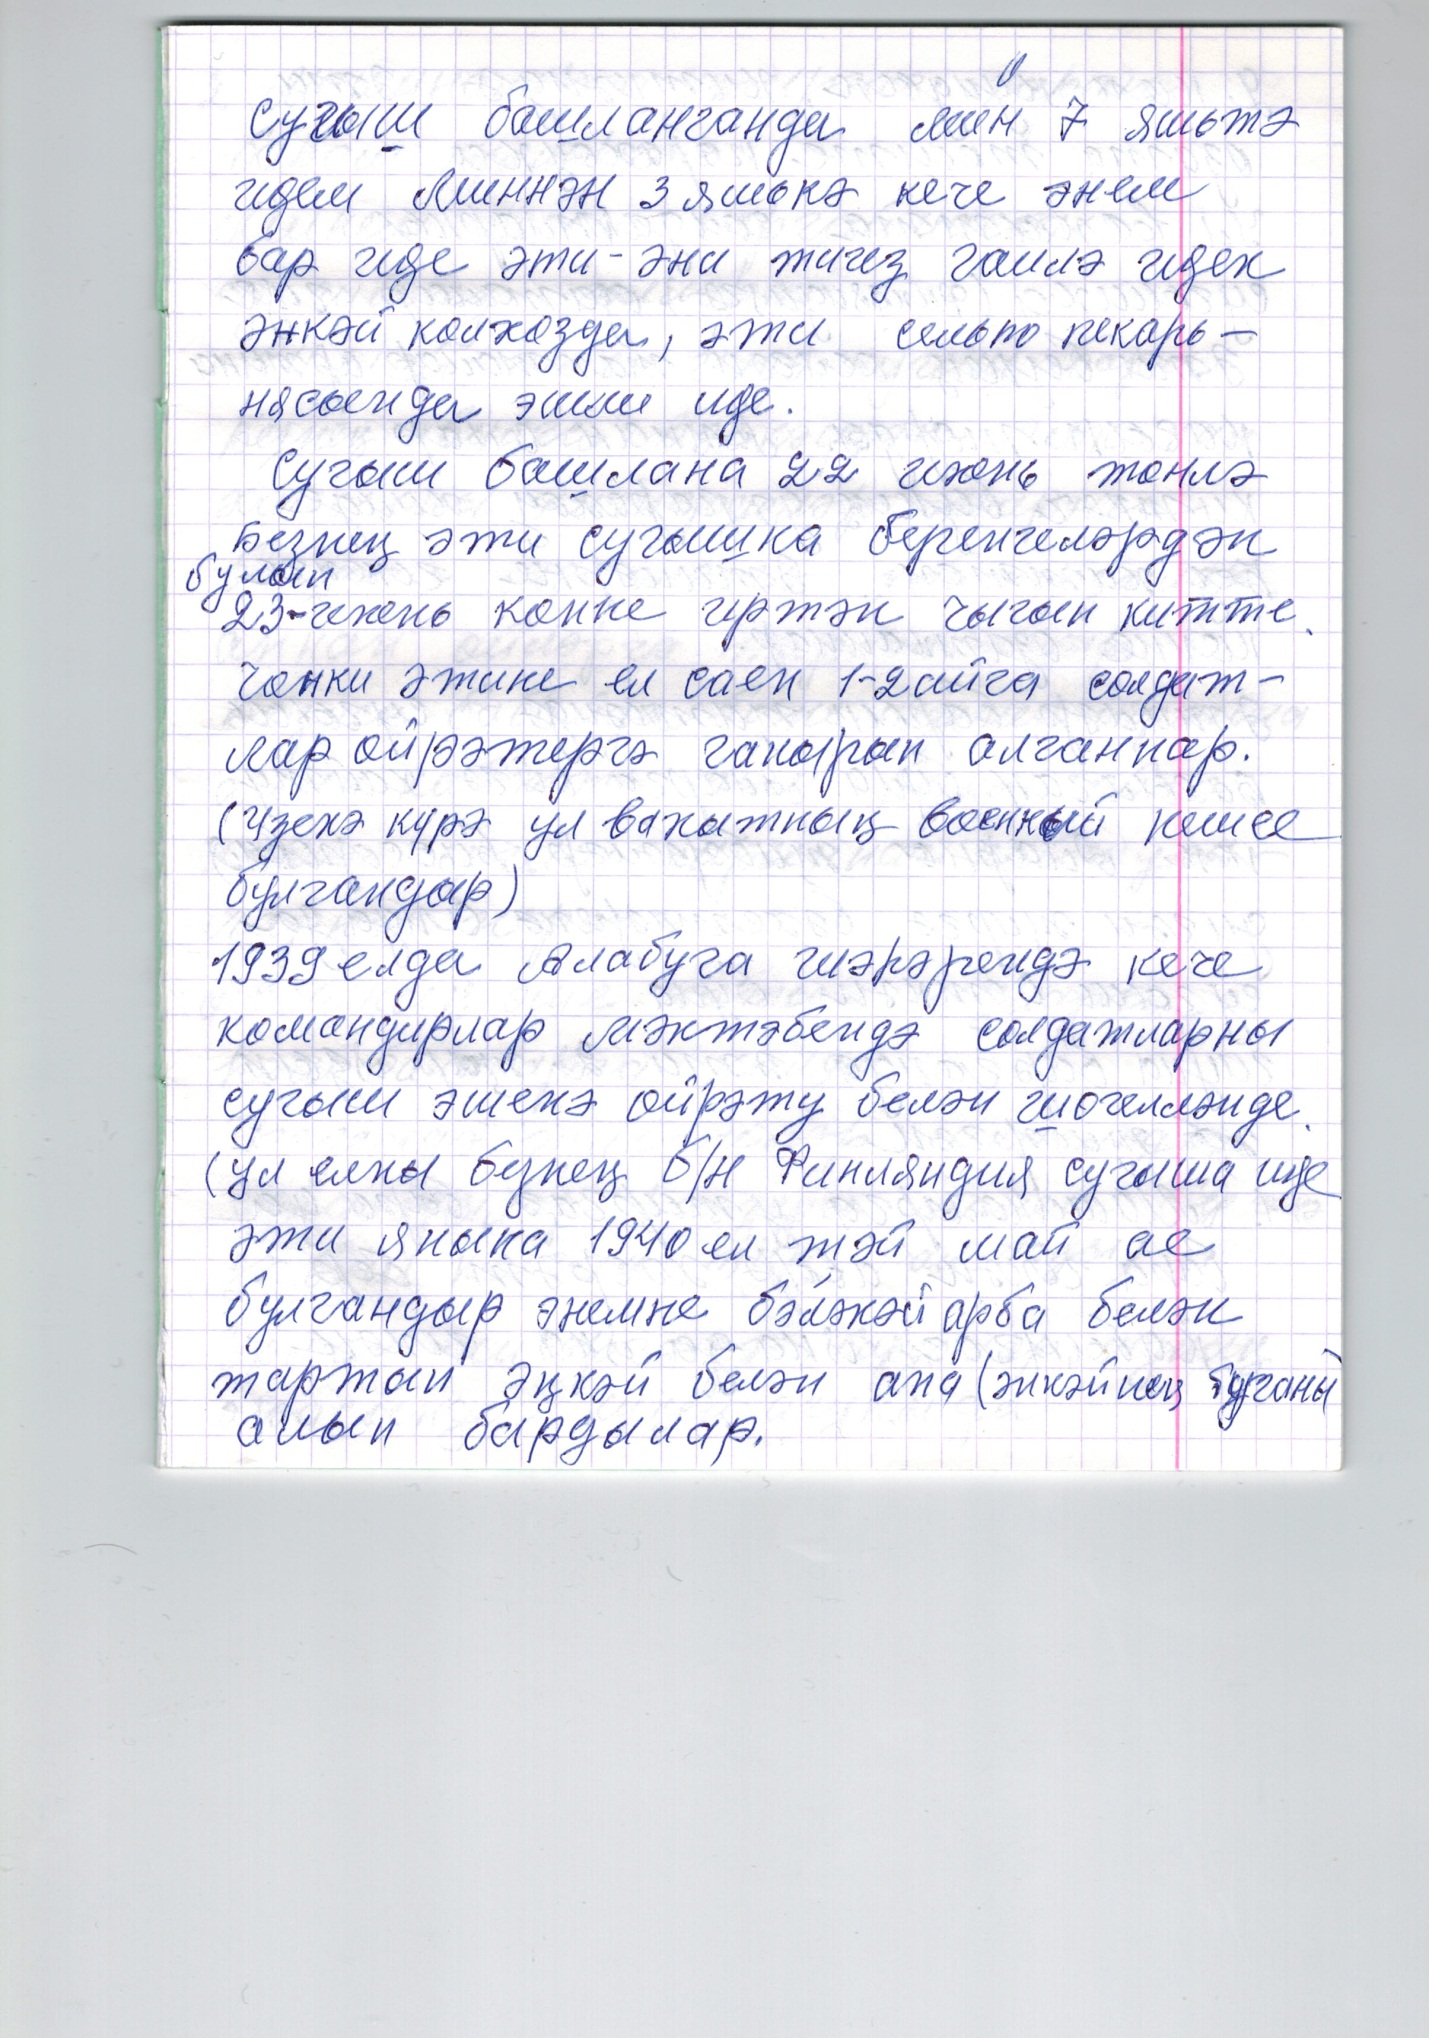 Сугыш башланганда мин 7 яшьтә
идем Миннән 3 яшькә кече энем
бар иде әти-әни тигез гаилә идек
әнкәй колхозда, әти сельпо пекарь-
нясында эшли иде.
Сугыш башлана 22 июнь төнлә
Безнең әти сугышка беренчеләрдән
булып
23-июнь көнне иртән чыгып китте.
Чөнки әтине ел саен 1-2 айга солдат-
лар өйрәтергә чакырып алганнар.
(Үзенә күрә ул вакытның военный кешсе
булгандыр)
1939 елда Алабуга шәһәрендә кече
командирлар мәктәбендә солдатларны
сугыш эшенә өйрәтү белән шөгелләнде.
(ул елны безнең б/н Финляндия сугыша иде
әти янына 1940 ел җәй май ае
булгандыр энемне бәләкәй арба белән
тартып әңкәй белән апа (әнкәйнең туганы)
алып бардылар.